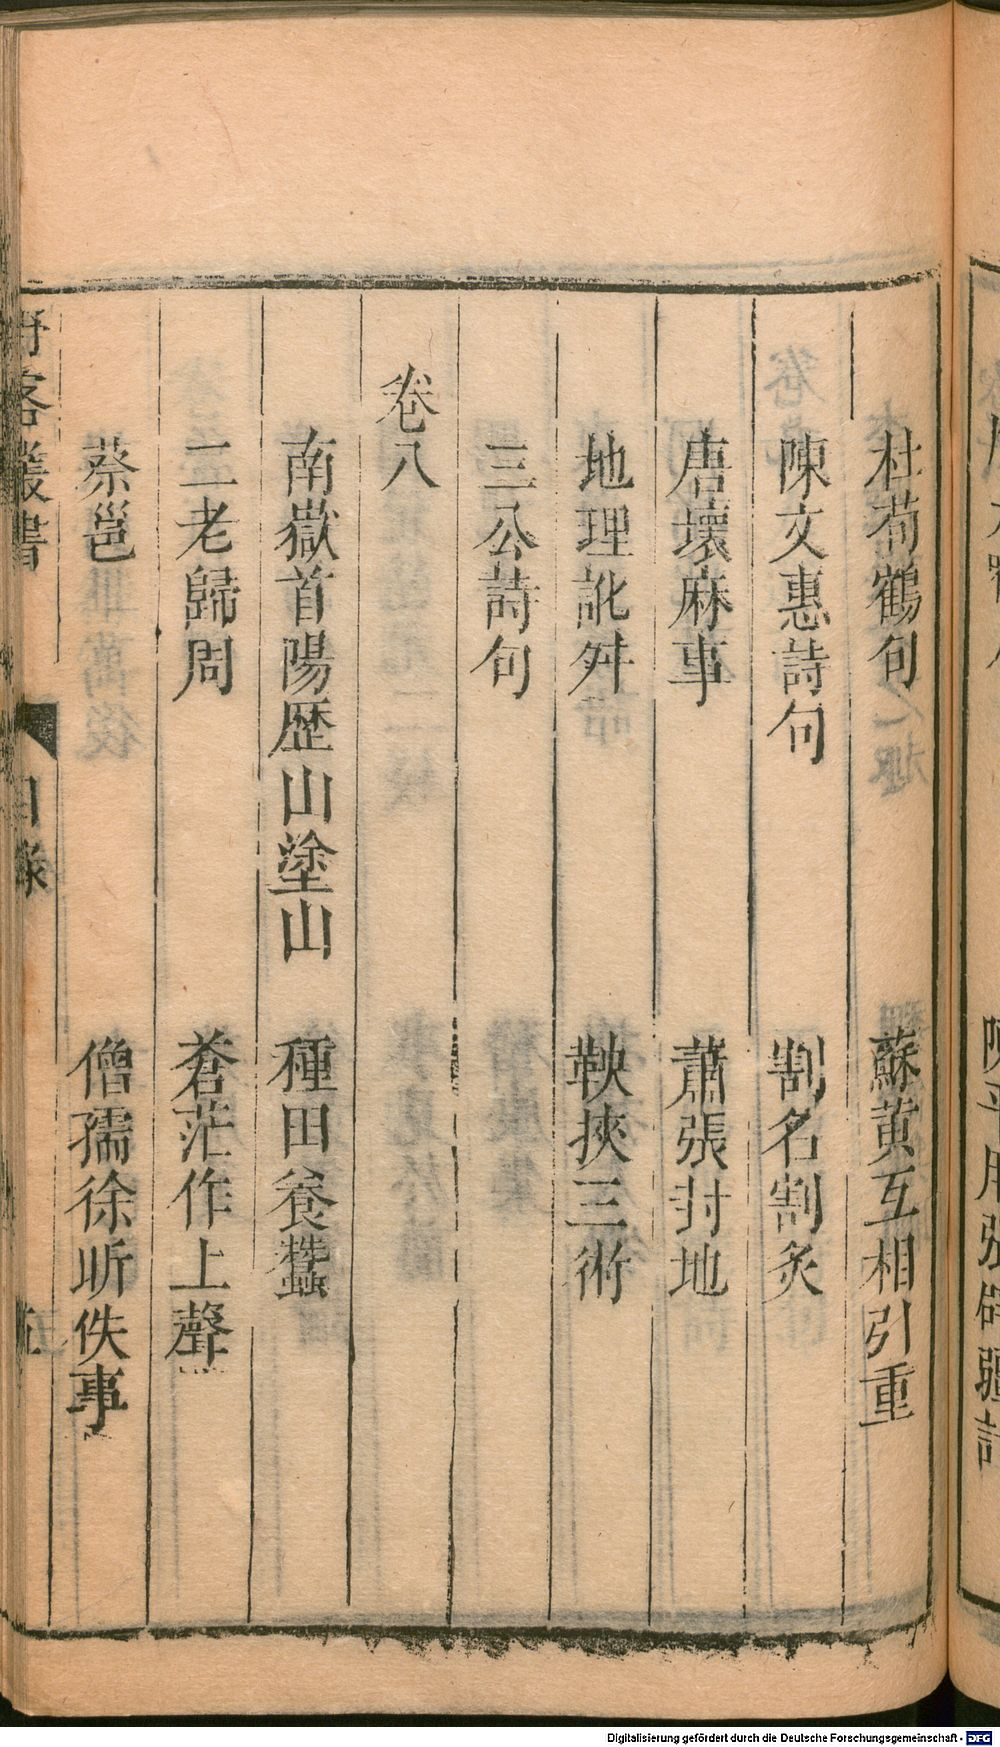 杜荀鶴句　蘇黄互相引重
陳文惠詩句　割名割炙
唐壞麻事　蕭張封地
地理訛舛　鞅挾三術
三公詩句
卷八
南嶽首陽歷山塗山　種田養蠶
二老歸周　蒼茫作上聲
蔡邕　僧孺徐昕佚事
野客叢書　目錄　五
Digitalisierung gefördert durch die Deutsche Forschungsgemeinschaft - DFG